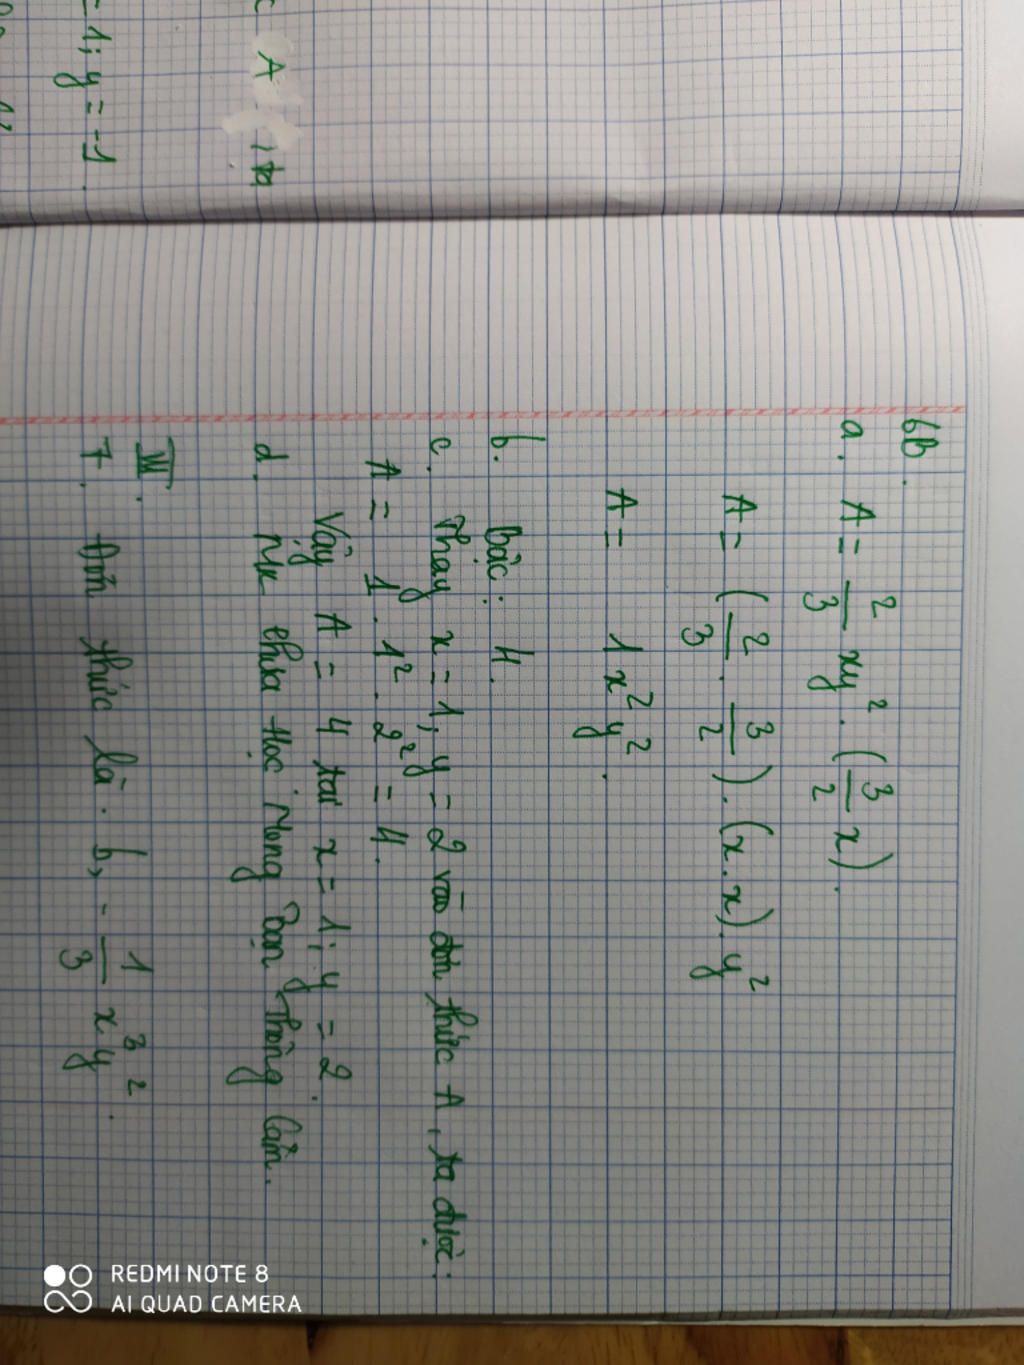 A
, ta
= 1; y = -1.
6B.
a. A = 2/3 xy². (3/2 x).
A = (2/3 . 3/2). (x.x). y²
A = 1x²y².
b. Bậc: 4.
c. Thay x = 1; y = 2 vào đơn thức A, ta được:
A = 1. 1². 2² = 4.
Vậy A = 4 tại x = 1; y = 2.
d. Mk chưa học. Mong bạn thông cảm.
III.
7. Đơn thức là: b, -1/3 x³y².
REDMI NOTE 8
AI QUAD CAMERA